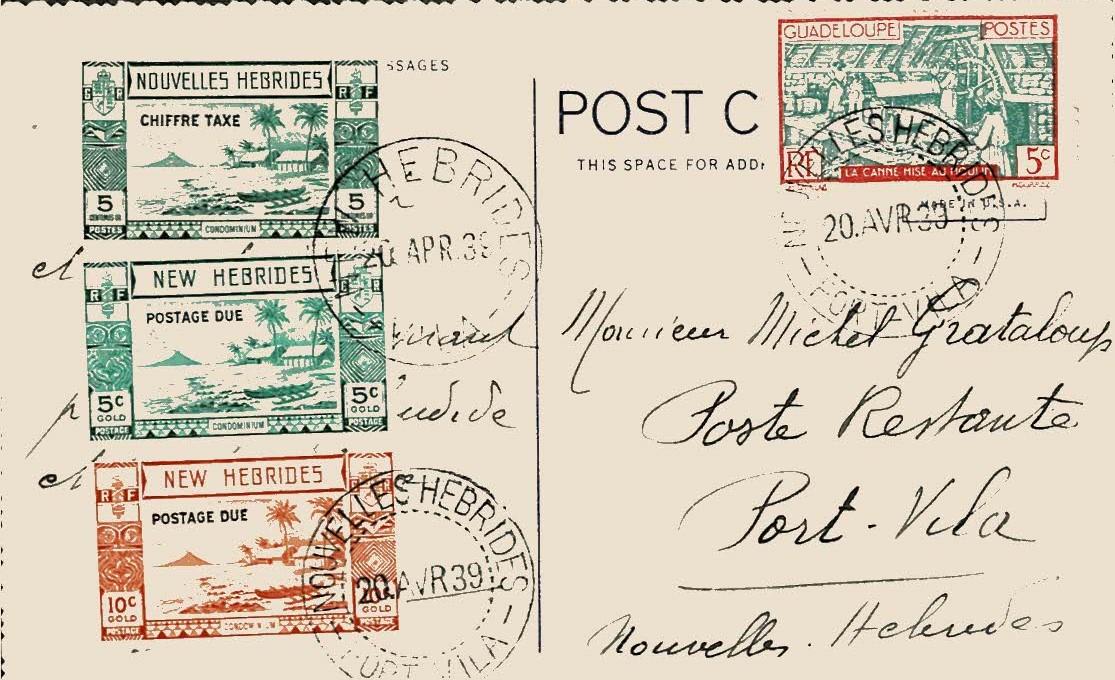 SSAGES
NOUVELLES HEBRIDES
CHIFFRE TAXE
G R
R F
5
5
POSTES
CONDOMINIUM
POSTES
HEBRIDES
20. APR. 39
NEW HEBRIDES
POSTAGE DUE
R F
G R
5c
GOLD
5c
GOLD
POSTAGE
CONDOMINIUM
POSTAGE
et
p
et
NEW HEBRIDES
POSTAGE DUE
R F
10c
GOLD
GOLD
POSTAGE
CONDOMINIUM
POSTAGE
NOUVELLES HEBRIDES
20. AVR 39
PORT-VILA
POST C
THIS SPACE FOR ADD
GUADELOUPE POSTES
RF
5c
LA CANNE MISE AU MOULIN
MADE IN U.S.A.
NOUVELLES HEBRIDES
20. AVR 39
PORT-VILA
Monsieur Michel Grataloup
Poste Restante
Port-Vila
Nouvelles. Hebrides